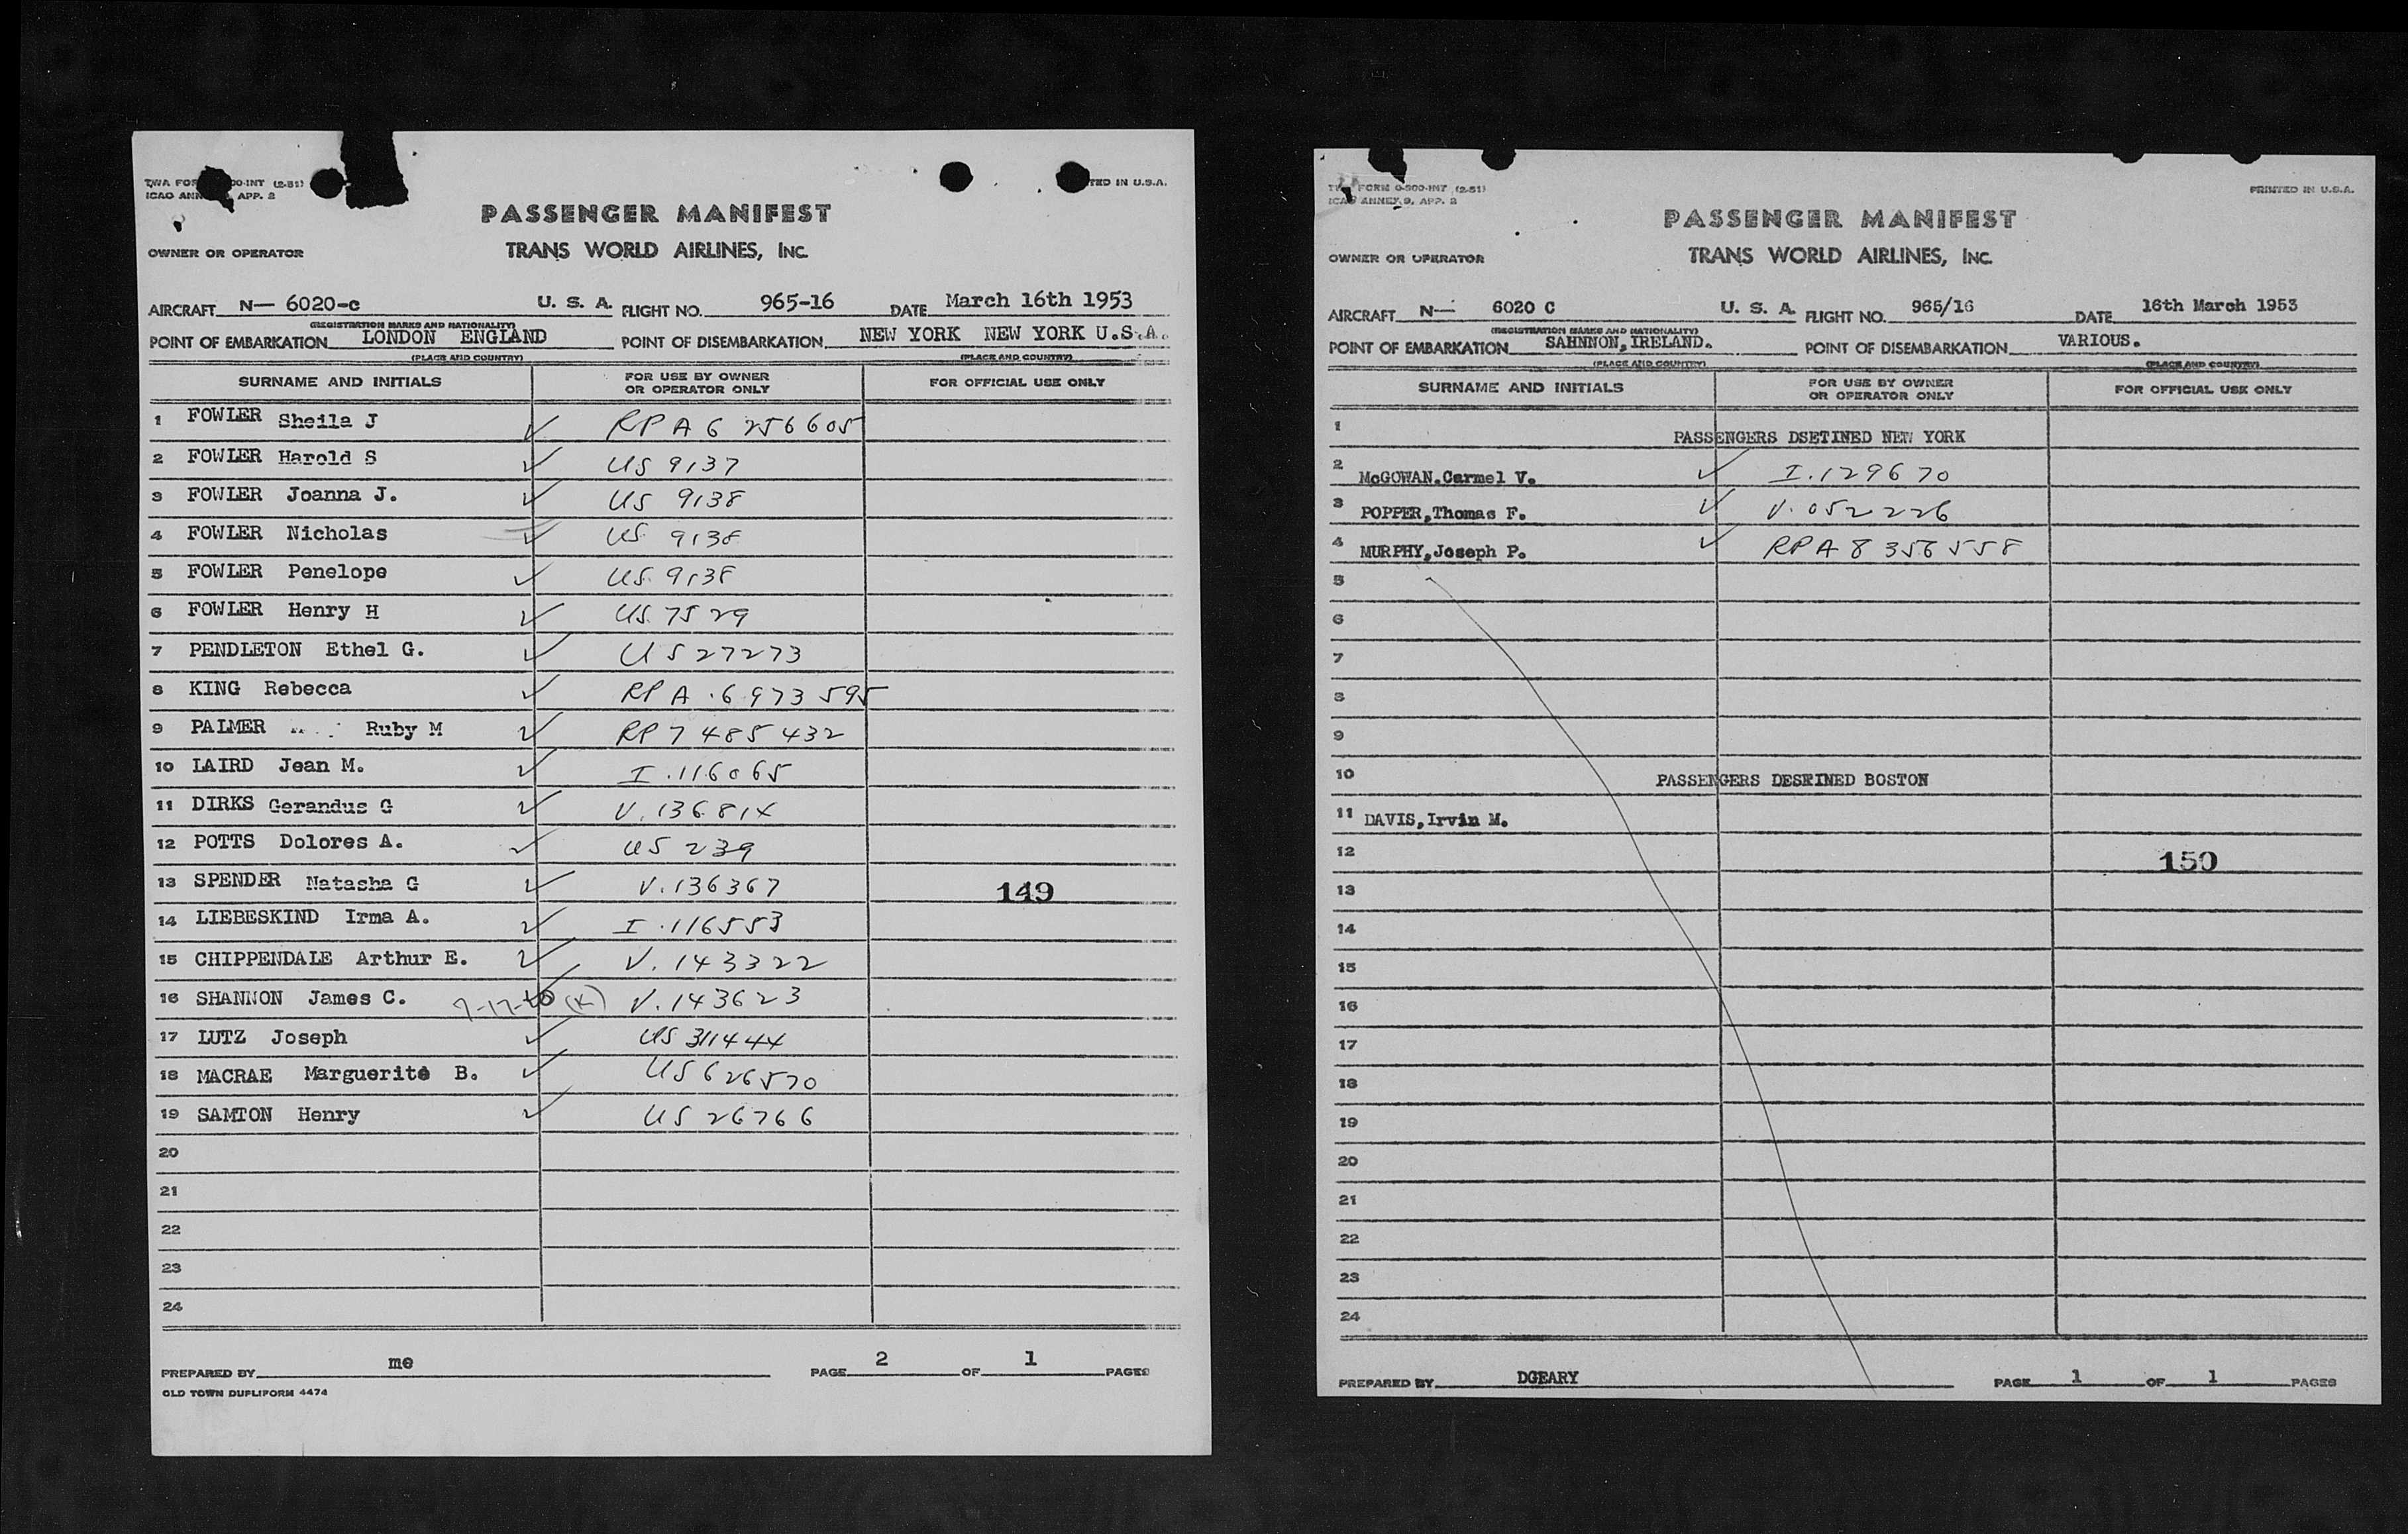 TWA FOR 00-INT (2-51)
ICAO ANN APP. 2
TED IN U.S.A.
PASSENGER MANIFEST
OWNER OR OPERATOR
TRANS WORLD AIRLINES, INC.
AIRCRAFT N— 6020-c U. S. A. FLIGHT NO. 965-16 DATE March 16th 1953
(REGISTRATION MARKS AND NATIONALITY)
POINT OF EMBARKATION LONDON ENGLAND POINT OF DISEMBARKATION NEW YORK NEW YORK U.S.A.
(PLACE AND COUNTRY) (PLACE AND COUNTRY)
SURNAME AND INITIALS FOR USE BY OWNER OR OPERATOR ONLY FOR OFFICIAL USE ONLY
1 FOWLER Sheila J ✓ RP A6 256605
2 FOWLER Harold S ✓ US 9137
3 FOWLER Joanna J. ✓ US 9138
4 FOWLER Nicholas ✓ US 9138
5 FOWLER Penelope ✓ US 9138
6 FOWLER Henry H ✓ US 7529
7 PENDLETON Ethel G. ✓ US 27273
8 KING Rebecca ✓ RP A.6973595
9 PALMER Ruby M ✓ RP7 485432
10 LAIRD Jean M. ✓ I.116065
11 DIRKS Gerandus G ✓ V.136814
12 POTTS Dolores A. ✓ US 239
13 SPENDER Natasha G ✓ V.136367 149
14 LIEBESKIND Irma A. ✓ I.116553
15 CHIPPENDALE Arthur E. ✓ V.143322
16 SHANNON James C. (K) V.143623
17 LUTZ Joseph ✓ US 311444
18 MACRAE Marguerite B. ✓ US 626570
19 SAMTON Henry ✓ US 26766
20
21
22
23
24
PREPARED BY me PAGE 2 OF 1 PAGES
OLD TOWN DUPLIFORM 4474
FORM 0-900-INT (2-51)
ICAO ANNEX 9, APP. 2
PRINTED IN U.S.A.
PASSENGER MANIFEST
OWNER OR OPERATOR
TRANS WORLD AIRLINES, INC.
AIRCRAFT N— 6020 C U. S. A. FLIGHT NO. 965/16 DATE 16th March 1953
(REGISTRATION MARKS AND NATIONALITY)
POINT OF EMBARKATION SAHNNON, IRELAND. POINT OF DISEMBARKATION VARIOUS.
(PLACE AND COUNTRY) (PLACE AND COUNTRY)
SURNAME AND INITIALS FOR USE BY OWNER OR OPERATOR ONLY FOR OFFICIAL USE ONLY
1 PASSENGERS DSETINED NEW YORK
2 McGOWAN.Carmel V. ✓ I.129670
3 POPPER,Thomas F. ✓ V.052226
4 MURPHY,Joseph P. ✓ RP A 8 356558
5
6
7
8
9
10 PASSENGERS DESRINED BOSTON
11 DAVIS,Irvin M.
12 150
13
14
15
16
17
18
19
20
21
22
23
24
PREPARED BY DGEARY PAGE 1 OF 1 PAGES